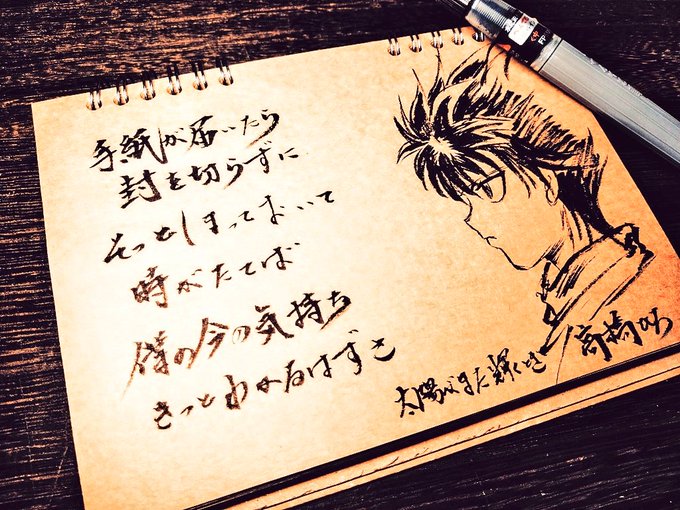 手紙が届いたら
封を切らずに
そっとしまっておいて
時がたてば
僕の今の気持ち
きっとわかるはずさ
太陽がまた輝くとき
高橋ひろ